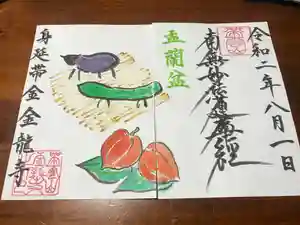 令和二年八月一日
南無妙法蓮華経
盂蘭盆
身延帯金金龍寺